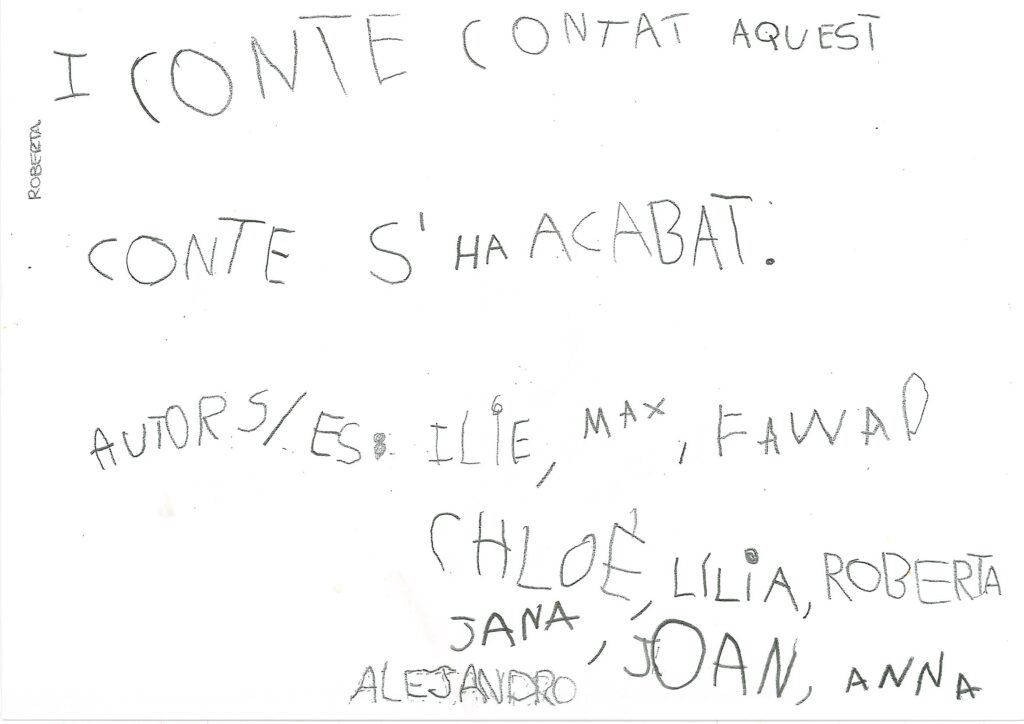 I CONTE CONTAT AQUEST
ROBERTA
CONTE S'HA ACABAT.
AUTORS/ES: ILIE, MAX, FAWAD
CHLOÉ, LÍLIA, ROBERTA
JANA, JOAN, ANNA
ALEJANDRO